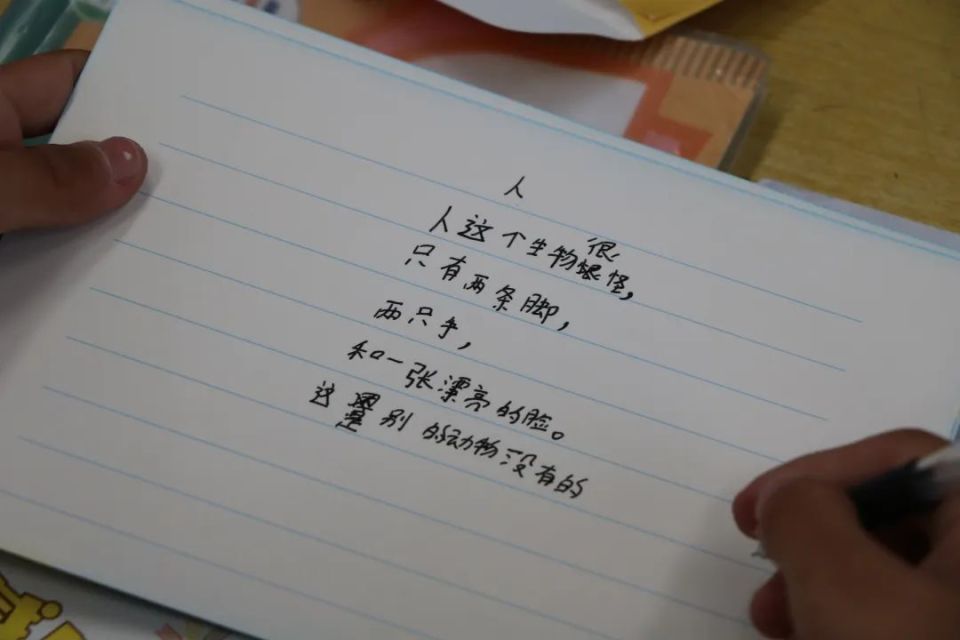 人
人这个生物很怪,
只有两条脚,
两只手,
和一张漂亮的脸。
这是别的动物没有的